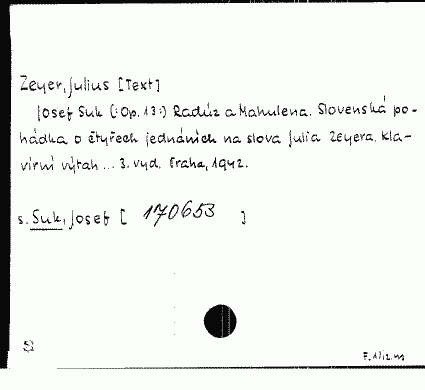 Zeyer, Julius [Text]
Josef Suk (:Op. 13:) Radúz a Mahulena. Slovenská po-
hádka o čtyřech jednáních na slova Julia Zeyera. Kla-
vírní výtah ... 3. vyd. Praha, 1942.
s. Suk, Josef [ 170653 ]